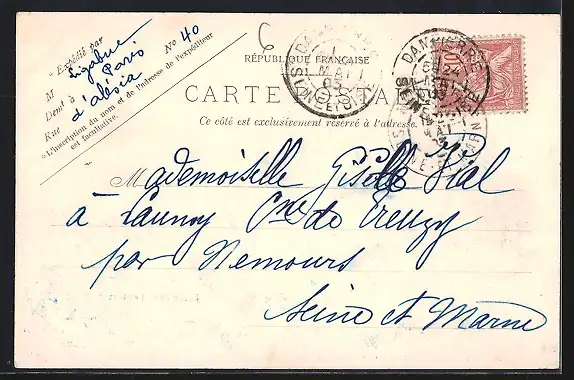 * Expédié par
M Ligabue
Demt à Paris
Rue d'alésia No 40
* L'inscription du nom et de l'adresse de l'expéditeur
est facultative.
6
RÉPUBLIQUE FRANÇAISE
CARTE POSTALE
Ce côté est exclusivement réservé à l'adresse.
DAMPIERRE
DAMPIERRE
10
Mademoiselle Giselle Vial
à Launoy Cne de Treuzy
par Nemours
Seine et Marne